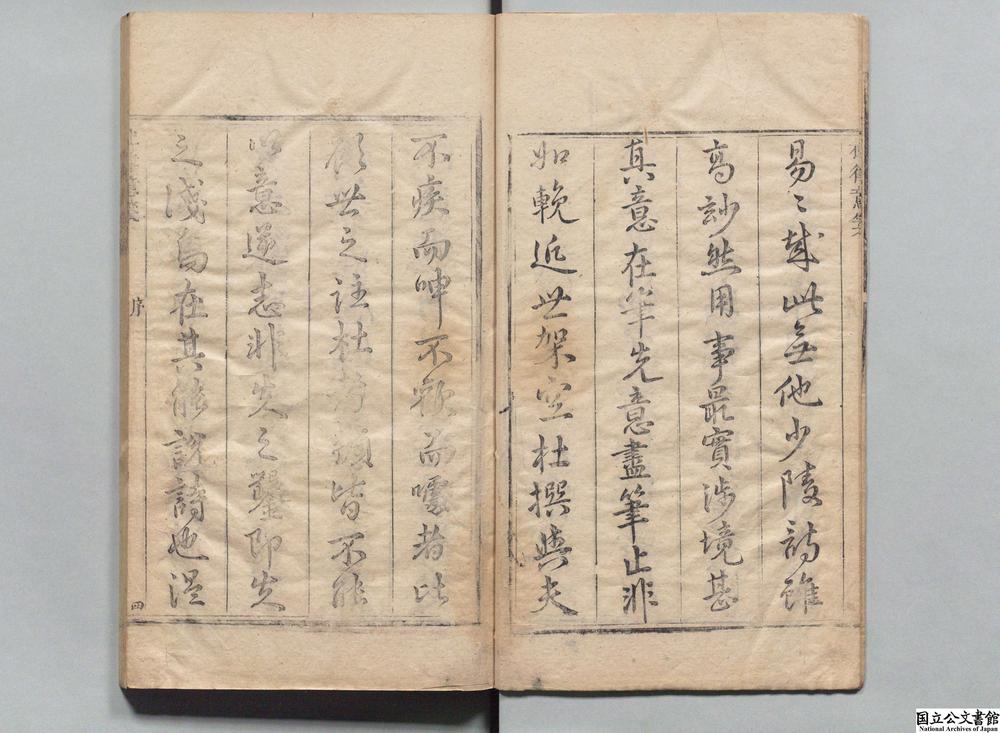 易〻哉此無他少陵詩雖
高妙然用事最實涉境甚
真意在筆先意盡筆止非
如輓近世架空杜撰與夫
不疾而呻不歡而噱者比
顧世之註杜者類皆不能
以意逆志非失之鑿即失
之淺烏在其能說詩也洪
序
四
国立公文書館
National Archives of Japan